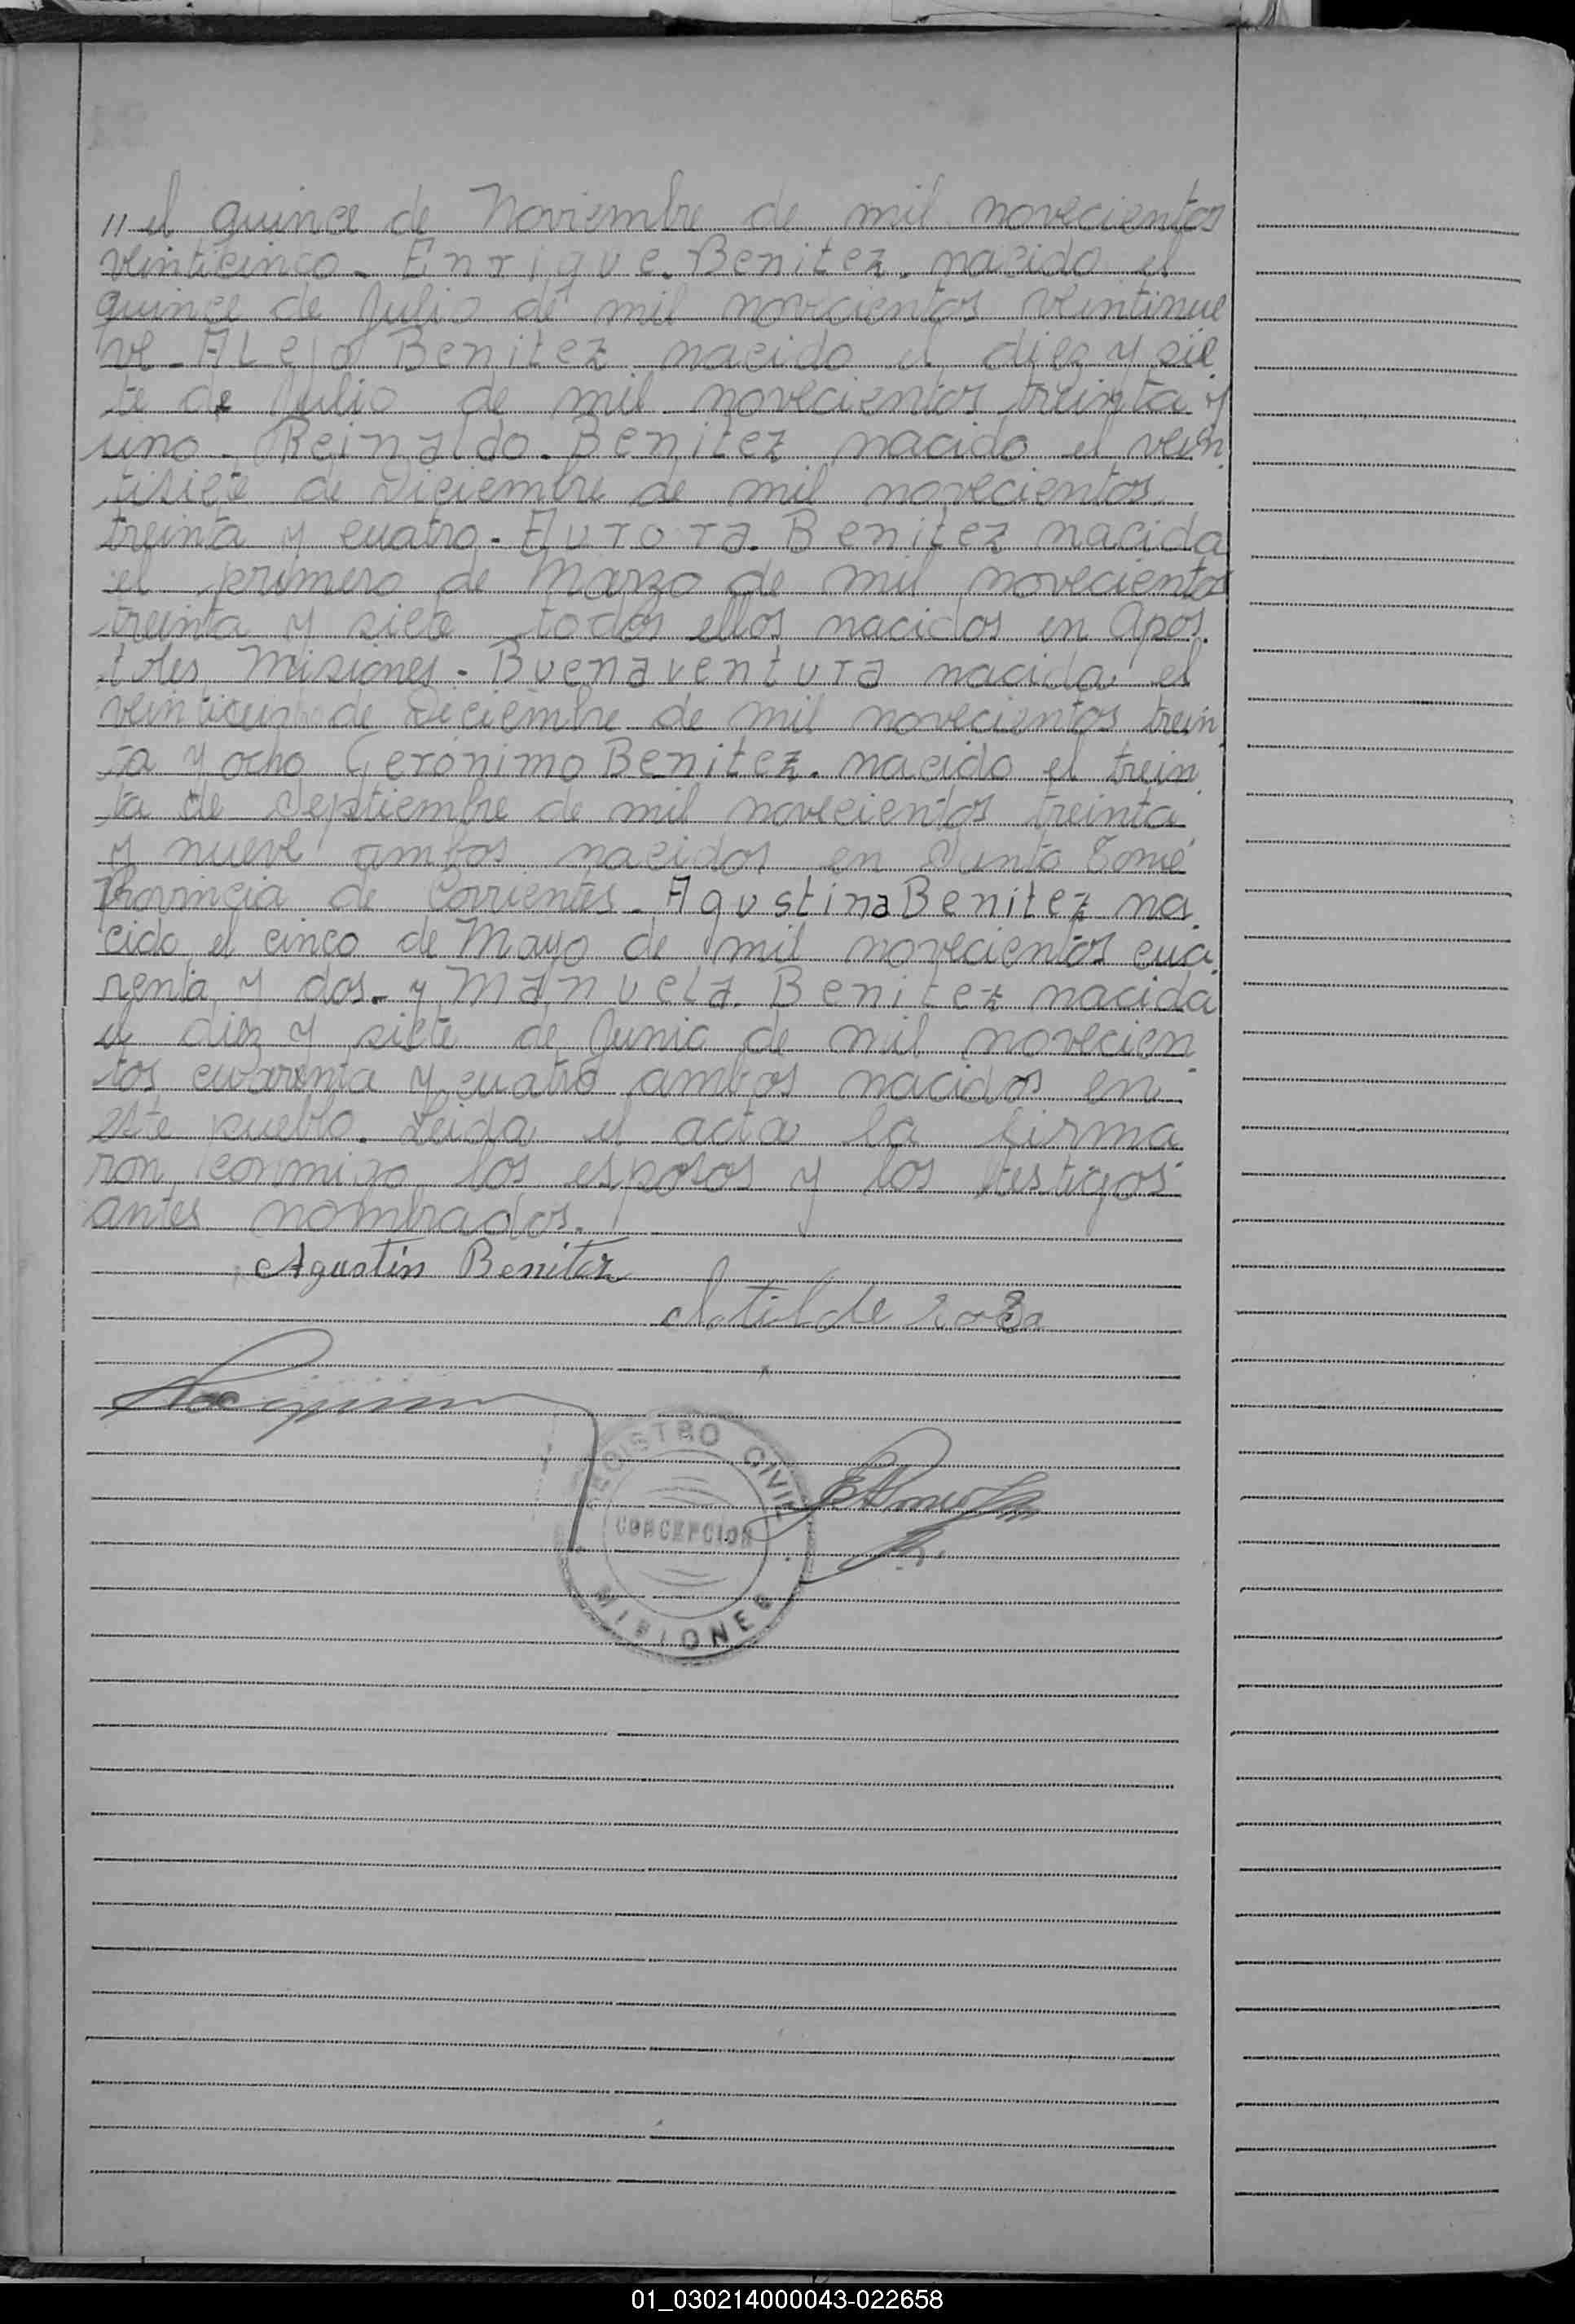 " el quince de Noviembre de mil novecientos
veinticinco - Enrique. Benitez. nacido el
quince de Julio de mil novecientos veintinue
ve - Alejo Benitez nacido el diez y sie
te de Julio de mil novecientos treinta y
uno - Reinaldo. Benitez nacido el vein
tisiete de Diciembre de mil novecientos
treinta y cuatro - Aurora. Benitez nacida
el primero de Marzo de mil novecientos
treinta y siete todos ellos nacidos en Apos
toles Misiones - Buenaventura nacida el
de Diciembre de mil novecientos trein
ta y ocho Gerónimo Benitez. nacido el trein
ta de Septiembre de mil novecientos treinta
y nueve ambos nacidos en Santo Tomé
Provincia de Corrientes - Agustina Benitez na
cido el cinco de Mayo de mil novecientos cua
renta y dos - y Manuela. Benitez nacida
el diez y siete de Junio de mil novecien
tos cuarenta y cuatro ambos nacidos en
este pueblo. Leida el acta la firma
ron conmigo los esposos y los testigos
antes nombrados.
Agustín Benitez
Clotilde
REGISTRO CIVIL
CONCEPCION
MISIONES
01_030214000043-022658